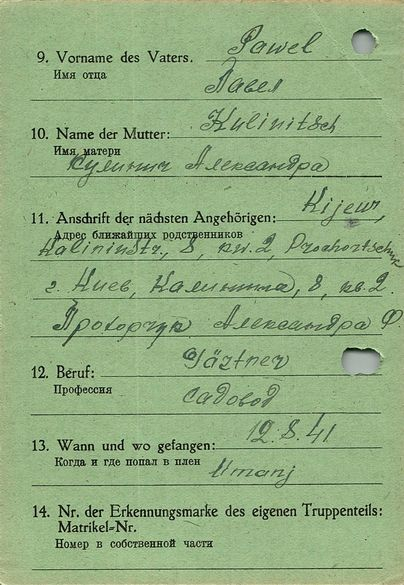 9. Vorname des Vaters. Pawel
Имя отца
Павел
10. Name der Mutter: Kulinitsch
Имя матери
Кулинич Александра
11. Anschrift der nächsten Angehörigen: Kijew,
Адрес ближайших родственников
Kalininstr., 8, kw. 2, Prochortschuk
г. Киев, Калинина, 8, кв. 2.
Прохорчук Александра Ф.
12. Beruf: Gärtner
Профессия
садовод
13. Wann und wo gefangen: 12.8.41
Когда и где попал в плен
Umanj
14. Nr. der Erkennungsmarke des eigenen Truppenteils:
Matrikel-Nr.
Номер в собственной части